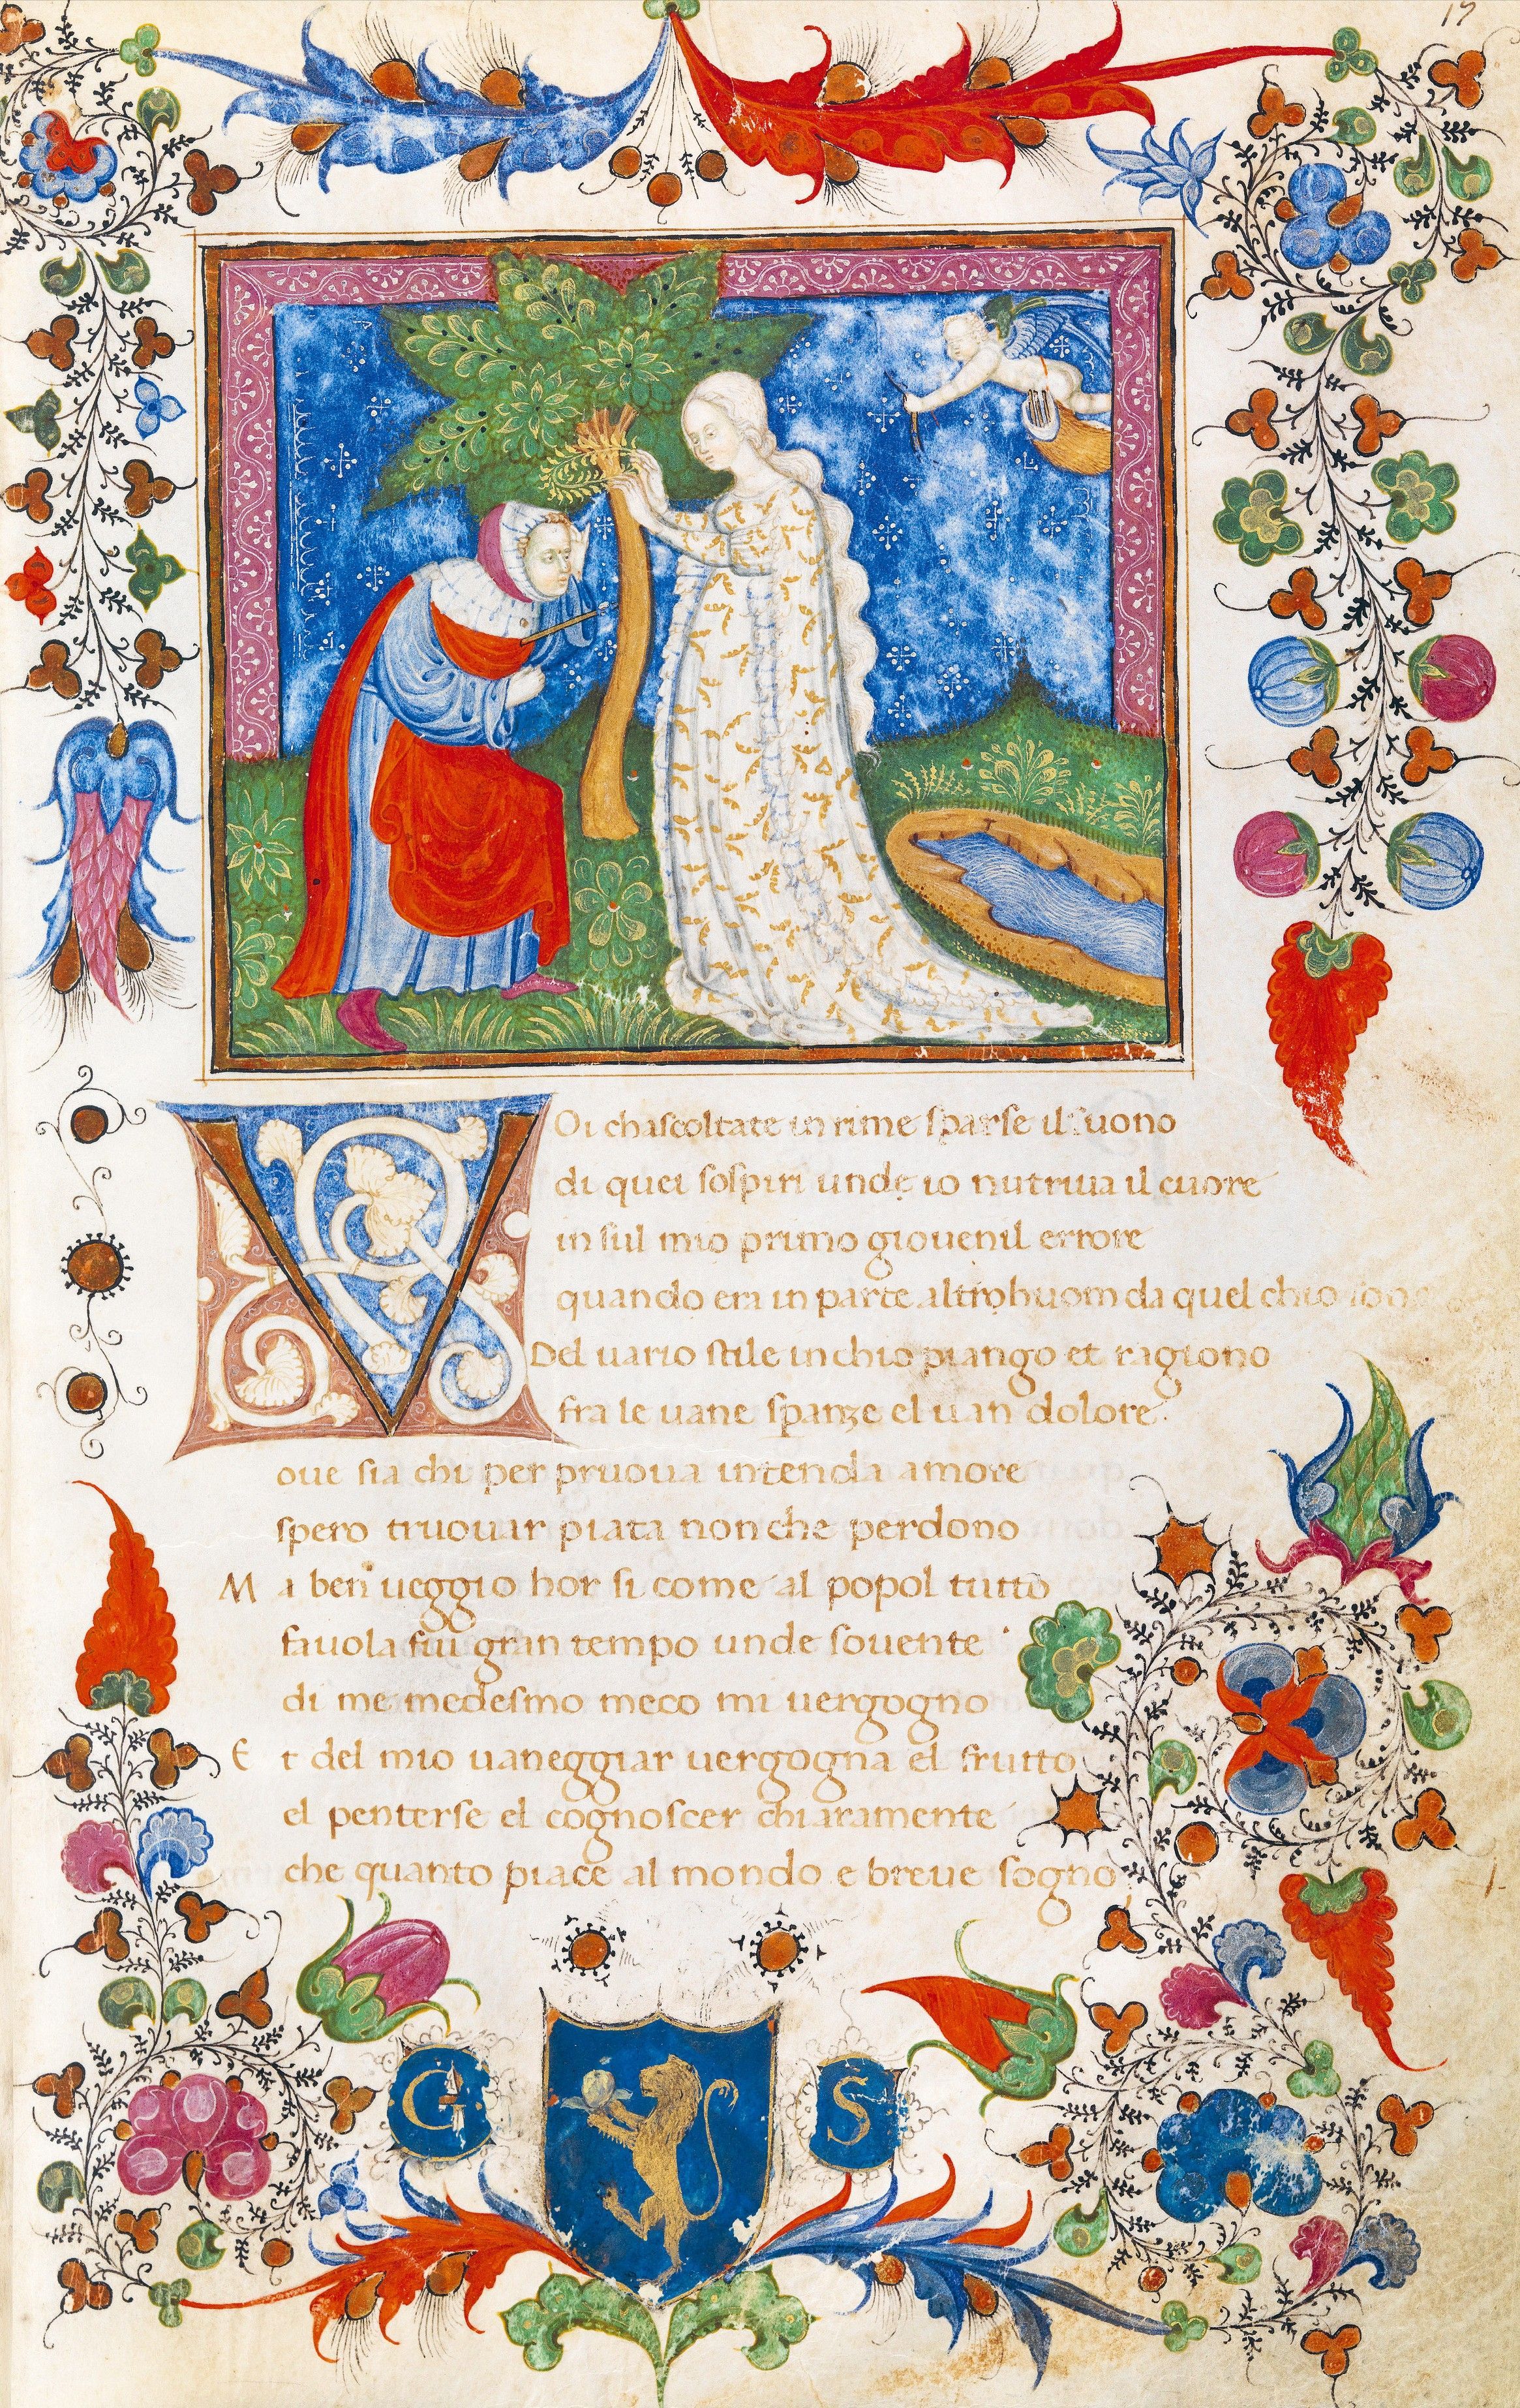 17
VOi chascoltate in rime sparse il suono
di quei sospiri unde io nutriua il cuore
in sul mio primo giouenil errore
quando era in parte altrohuom da quel chio sono
Del uario stile inchio piango et ragiono
fra le uane spanze el uan dolore
oue sia chi per pruoua intenda amore
spero truouar piata non che perdono
Ma ben ueggio hor si come al popol tutto
fauola fui gran tempo unde souente
di me medesmo meco mi uergogno
Et del mio uaneggiar uergogna el frutto
el penterse el cognoscer chiaramente
che quanto piace al mondo e breue sogno
G S